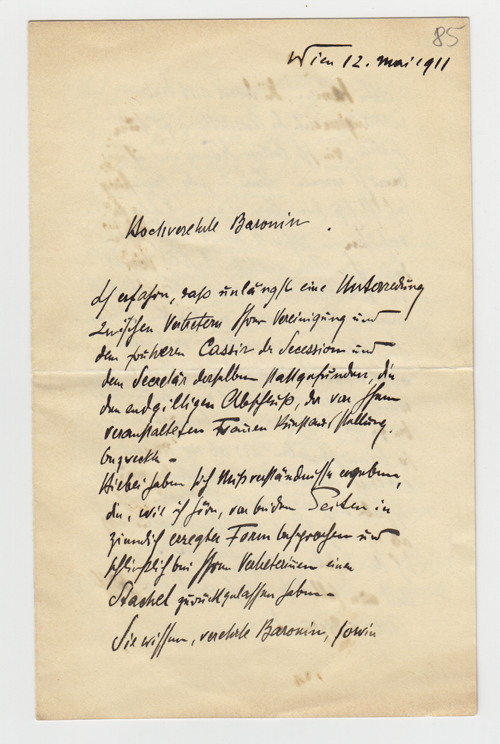 85
Wien 12. Mai 1911
Hochverehrte Baronin.
Ich erfahre, daß unlängst eine Unterredung
zwischen Vertretern Ihrer Vereinigung und
dem früheren Cassir der Secession und
dem Secretär derselben stattgefunden, die
den endgiltigen Abschluß, der von Ihnen
veranstalteten Frauen Kunstausstellung
bezweckte –
Hiebei haben sich Mißverständnisse ergeben,
die, wie ich höre, von beiden Seiten in
ziemlich erregter Form besprochen und
schließlich bei Ihren Vertreterinnen einen
Stachel zurückgelassen haben –
Sie wissen, verehrte Baronin,